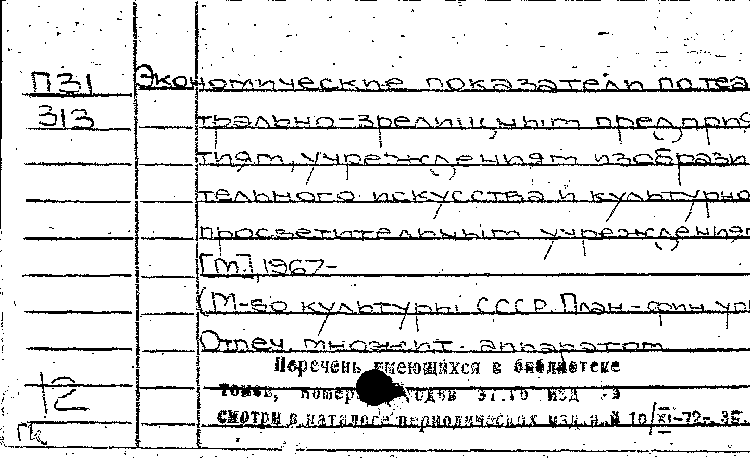 П31 Экономические показатели по теа
313 трально-зрелищным предприя
тиям, учреждениям изобрази
тельного искусства и культурно
просветительным учреждения
[М.], 1967-
(М-во культуры СССР. План-фин. упр
Отпеч. множит. аппаратом
Перечень имеющихся в библиотеке
томов, номер годам изд
12 смотри в каталоге периодических изд
ПК